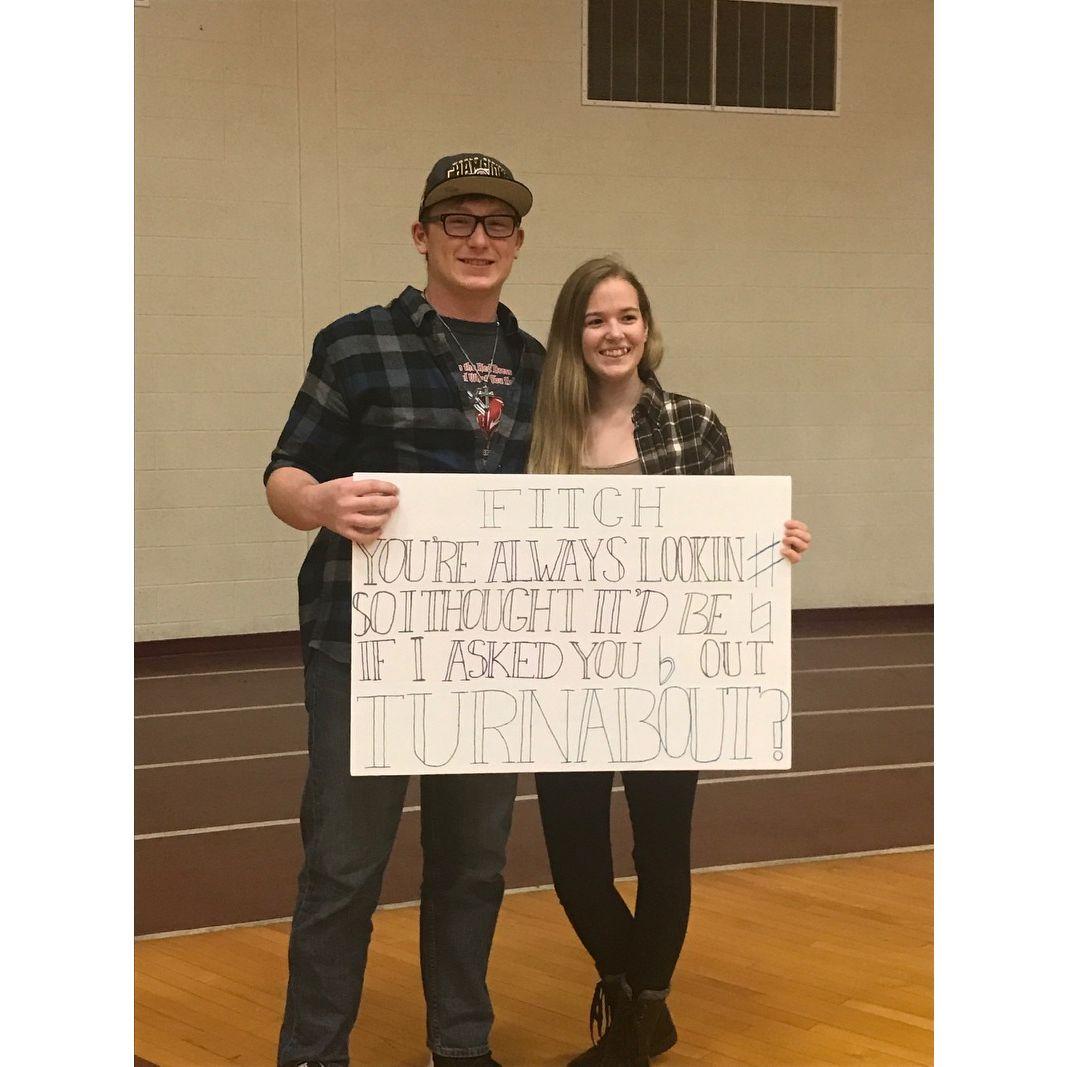 CHAMPIONS
FITCH
YOU'RE ALWAYS LOOKIN ♯
SO I THOUGHT IT'D BE ♮
IF I ASKED YOU ♭ OUT
TURNABOUT?